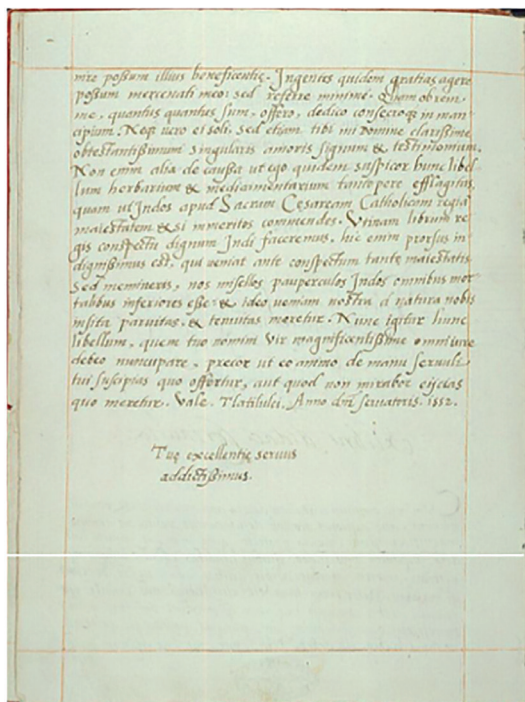 mre possum illius beneficentię. Ingentes quidem gratias agere
possum mercenati meo: sed referre minime. Quam obrem
me, quantus quantus sum, offero, dedico consecroq; in man
cipium. Neq; vero ei soli, sed etiam tibi mi Domine clarissime
obtestantissimum singularis amoris signum & testimonium.
Non enim alia de caussa ut ego quidem suspicor hunc libel-
lum herbarium & medicamentarium tantopere efflagitas,
quam ut Indos apud Sacram Cęsaream Catholicam regiā
maiestatem & si immeritos commendes. Vtinam librum re
gis conspectu dignum Indi faceremus, hic enim prorsus in
dignissimus est, qui veniat ante conspectum tantę maiestatis
Sed memineris, nos misellos pauperculos Indos omnibus mor
talibus inferiores esse: & ideo veniam nostra a natura nobis
insita paruitas & tenuitas meretur. Nunc igitur hunc
libellum, quem tuo nomini Vir magnificentissime omni iure
debeo nuncupare, precor ut eo animo de manu seruuli
tui suscipias quo offertur, aut quod non mirabor eijcias
quo meretur. Vale. Tlatilulci. Anno dn̄i seruatoris. 1552.
Tuę excellentię seruus
addictissimus.